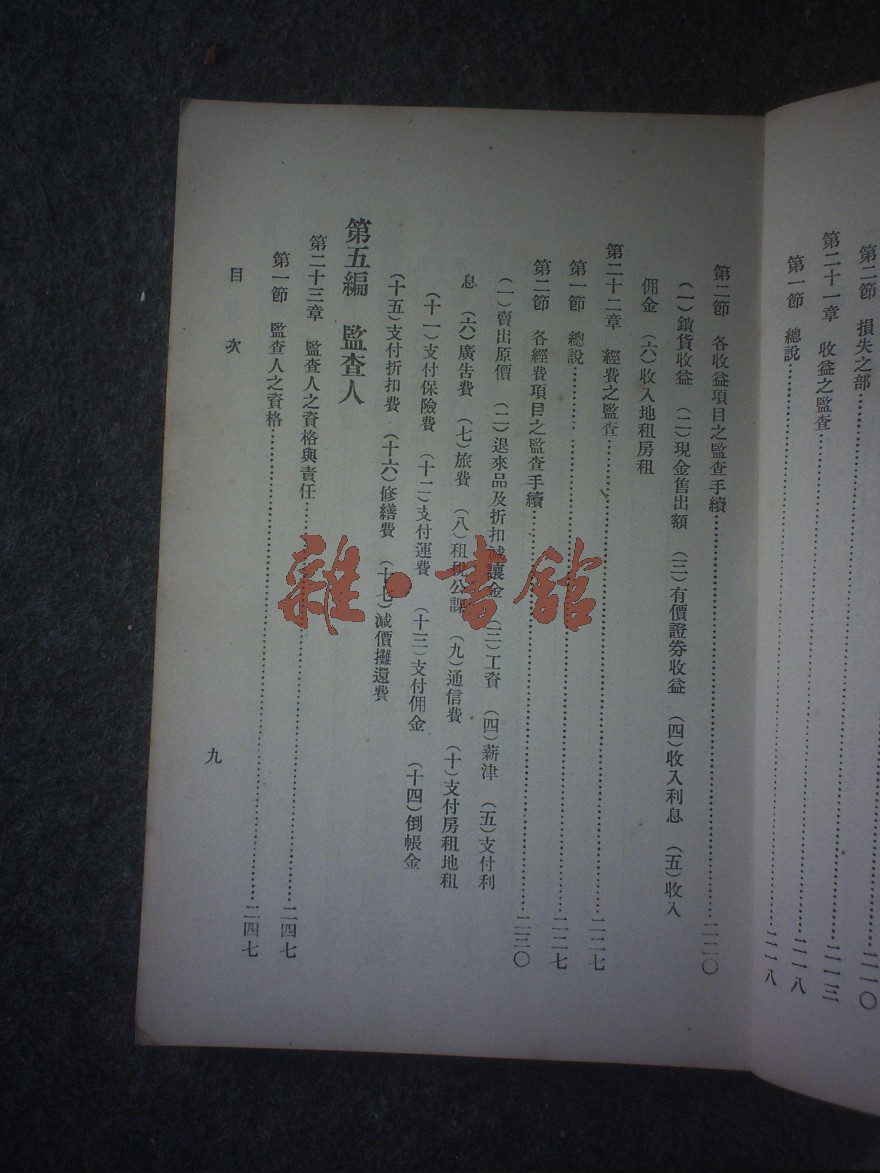 二一〇
第二節 損失之部……二一三
第二十一章 收益之監查……二一八
第一節 總說……二一八
第二節 各收益項目之監查手續……二二〇
（一）鎖貨收益 （二）現金售出額 （三）有價證券收益 （四）收入利息 （五）收入
佣金 （六）收入地租房租
第二十二章 經費之監查……二二七
第一節 總說……二二七
第二節 各經費項目之監查手續……二三〇
（一）賣出原價 （二）退來品及折扣減讓金 （三）工資 （四）薪津 （五）支付利
息 （六）廣告費 （七）旅費 （八）租稅公課 （九）通信費 （十）支付房租地租
（十一）支付保險費 （十二）支付運費 （十三）支付佣金 （十四）倒帳金
（十五）支付折扣費 （十六）修繕費 （十七）減價攤還費
第五編 監查人
第二十三章 監查人之資格與責任……二四七
第一節 監查人之資格……二四七
目次
九
雜·書館